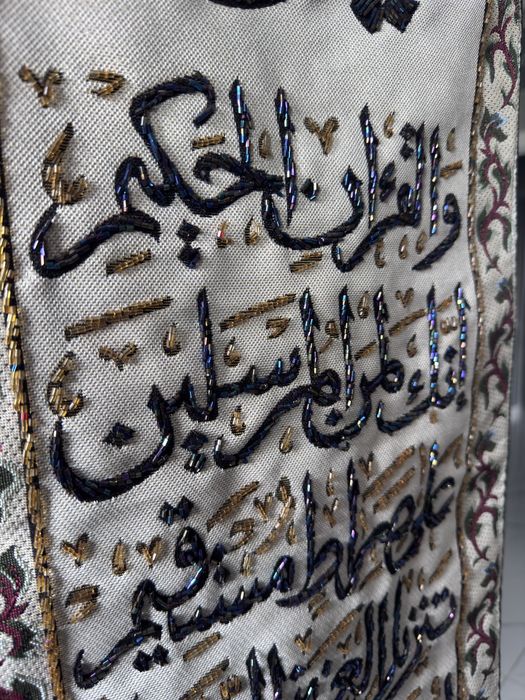 والقرآن الحكيم
إنك لمن المرسلين
على صراط مستقيم
تنزيل العزيز